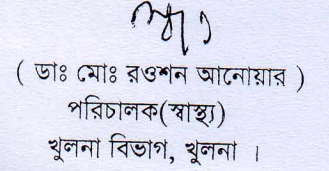 ( ডাঃ মোঃ রওশন আনোয়ার )
পরিচালক(স্বাস্থ্য)
খুলনা বিভাগ, খুলনা ।